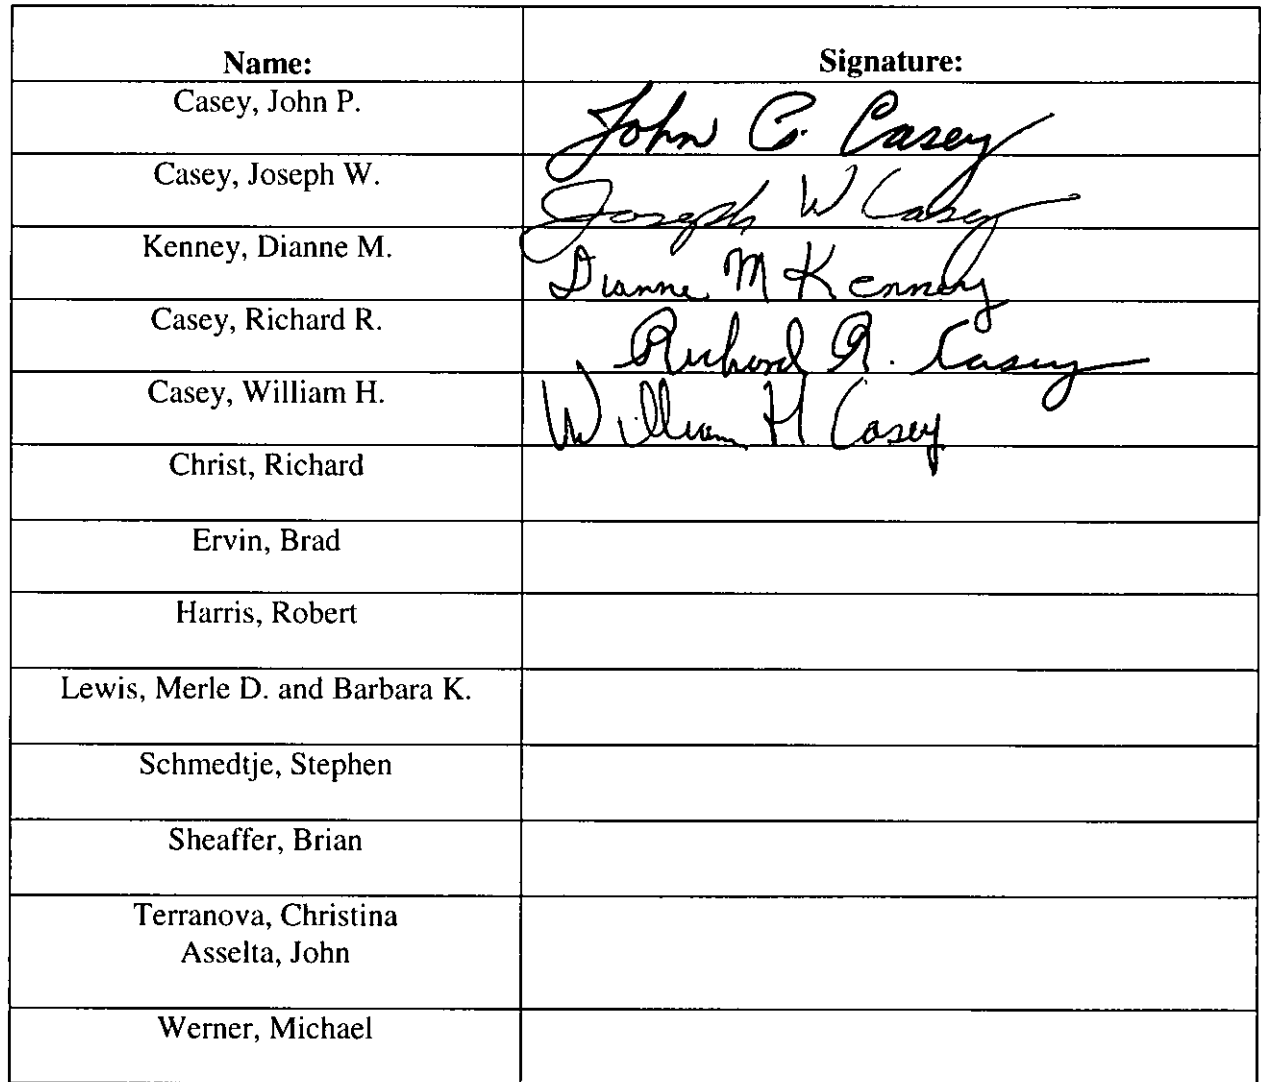 Name: Signature:
Casey, John P. John P. Casey
Casey, Joseph W. Joseph W Casey
Kenney, Dianne M. Dianne M Kenney
Casey, Richard R. Richard R. Casey
Casey, William H. William H Casey
Christ, Richard
Ervin, Brad
Harris, Robert
Lewis, Merle D. and Barbara K.
Schmedtje, Stephen
Sheaffer, Brian
Terranova, Christina
Asselta, John
Werner, Michael